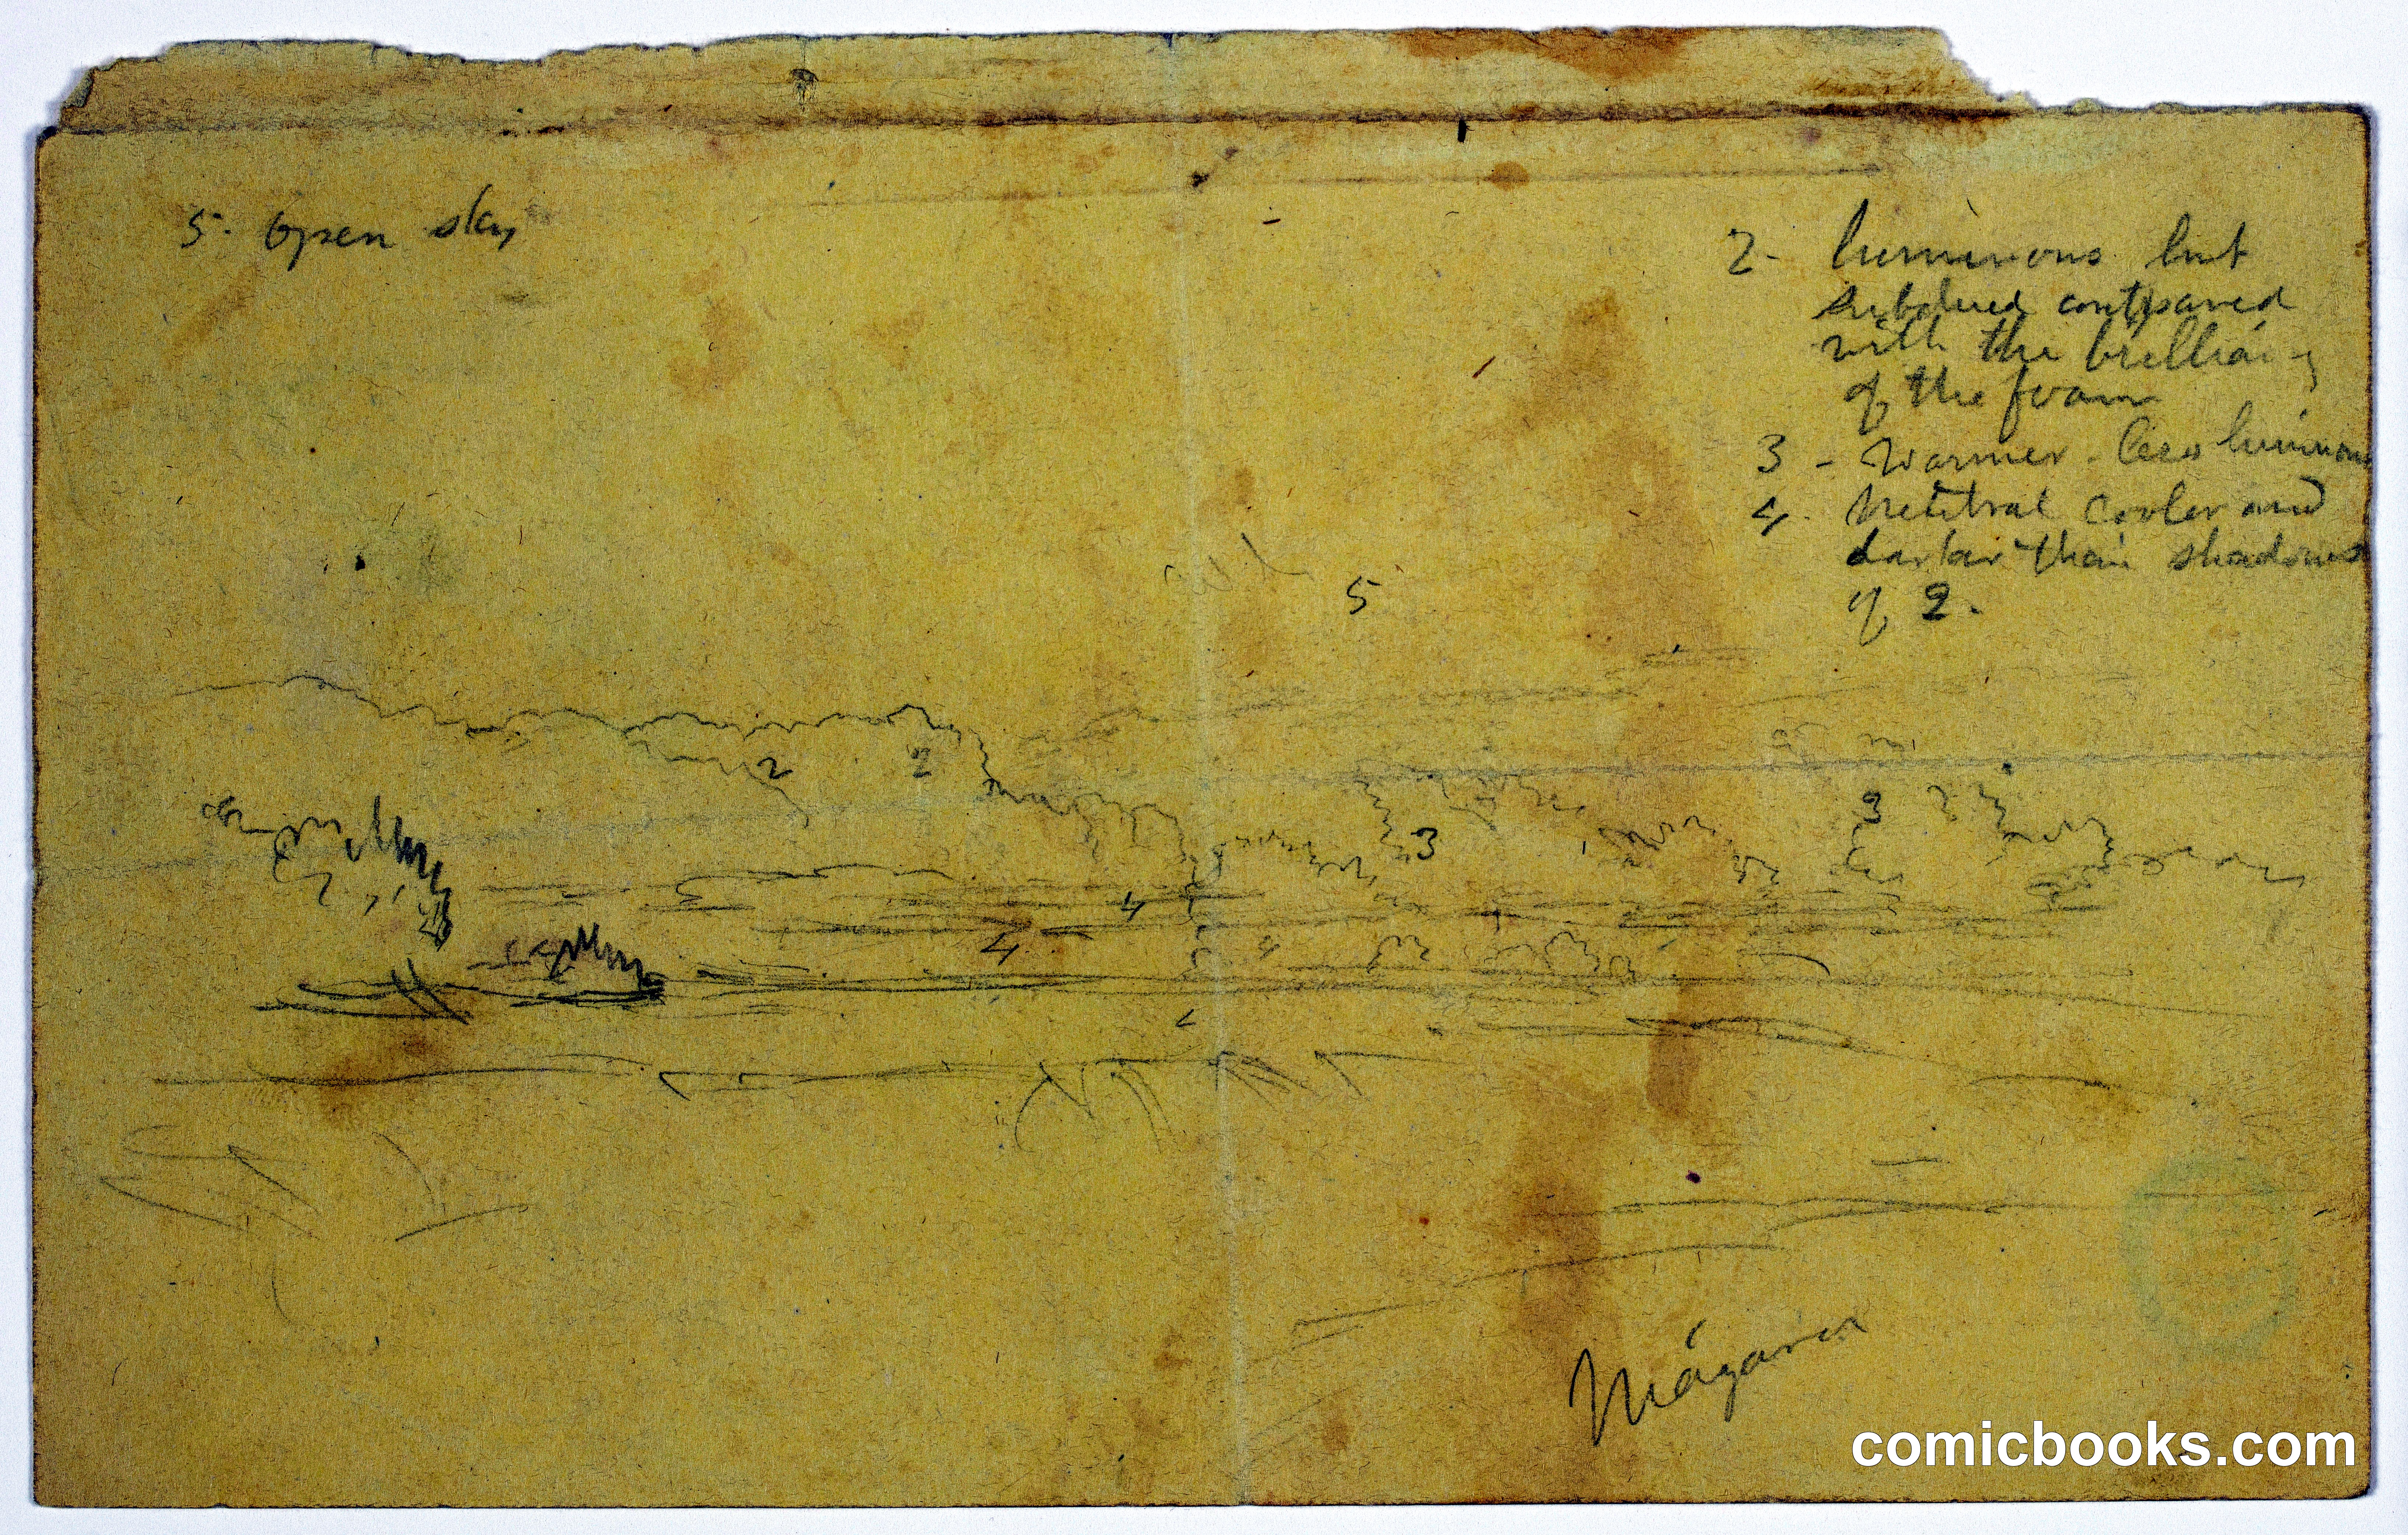 5. Open sky
2- luminous but
subdued compared
with the brilliancy
of the foam
3 - Warmer. less luminous
4. Neutral cooler and
darker than shadows
of 2.
5
2 2
3 3
4
4 4
comicbooks.com